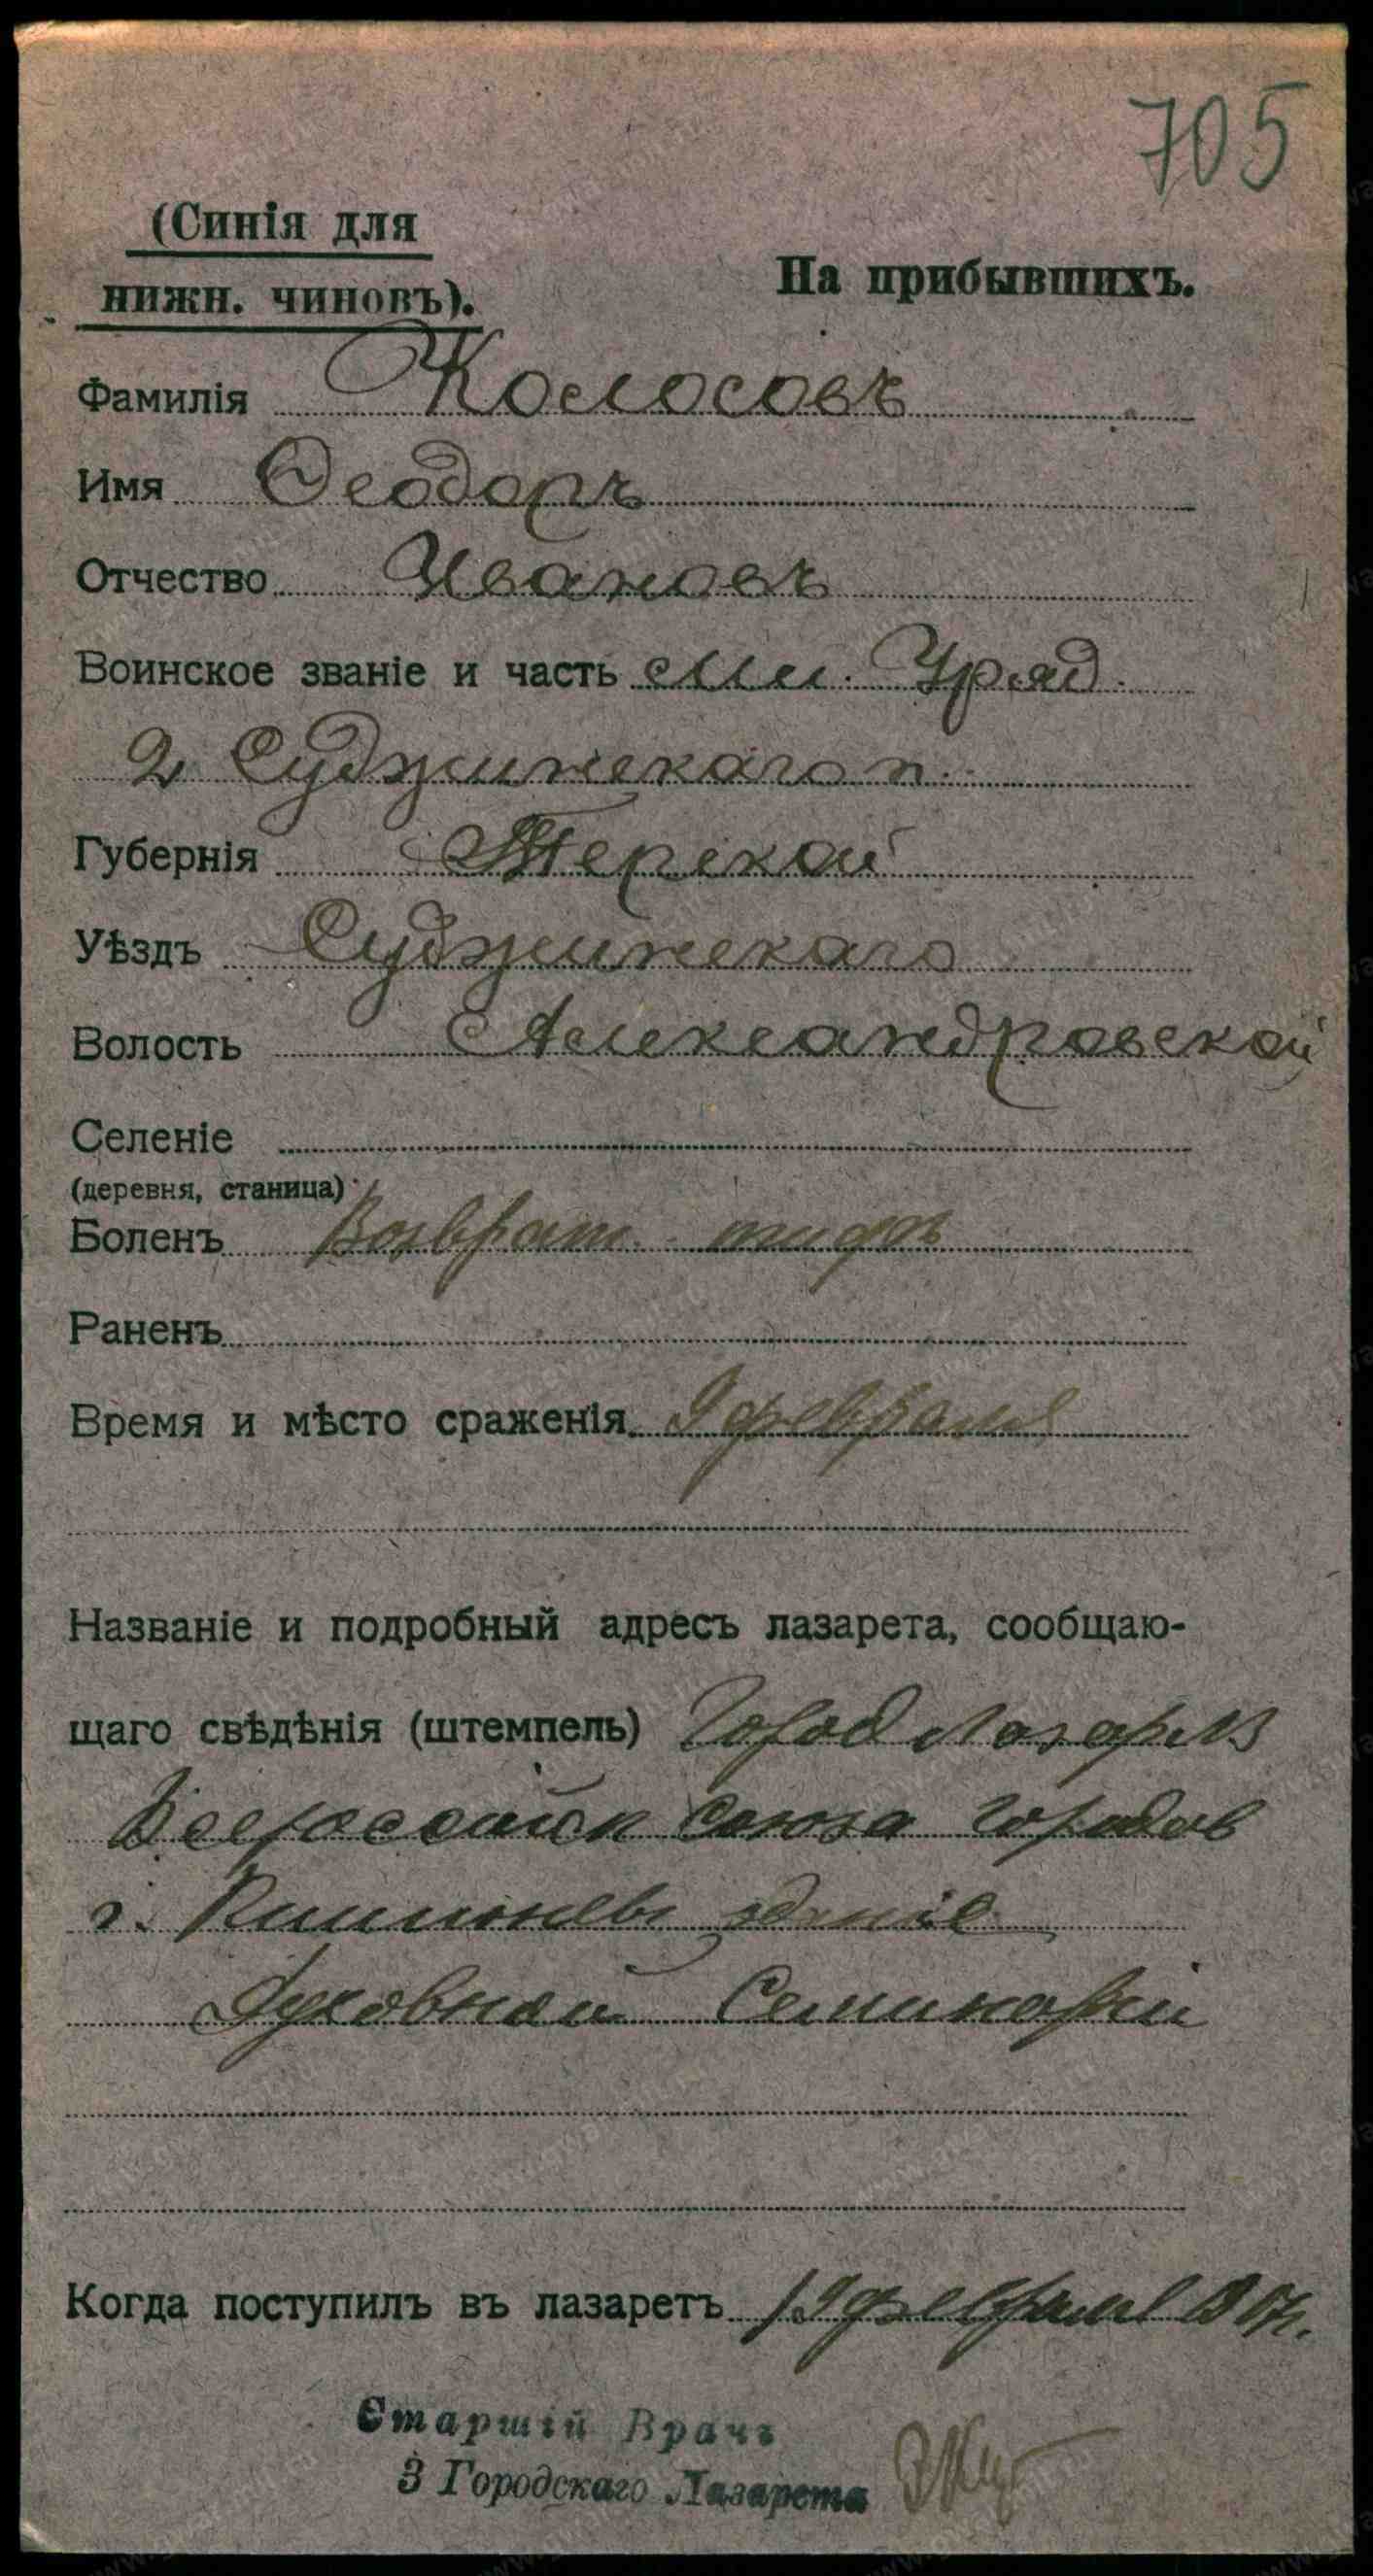 705
(Синія для
нижн. чиновъ).
На прибывшихъ.
Фамилія Колосовъ
Имя Ѳеодоръ
Отчество Ивановъ
Воинское званіе и часть мл. Уряд.
2 Сунджинскаго п.
Губернія Терской
Уѣздъ Сунджинскаго
Волость Александровской
Селеніе
(деревня, станица)
Боленъ Возврат. тифъ
Раненъ
Время и мѣсто сраженія 9 февраля
Названіе и подробный адресъ лазарета, сообщаю-
щаго свѣдѣнія (штемпель) Город Лазар №3
Всероссійск Союза городов
г. Кишиневъ зданіе
Духовной Семинаріи
Когда поступилъ въ лазаретъ 19 февраля
Старшій Врачъ
3 Городскаго Лазарета